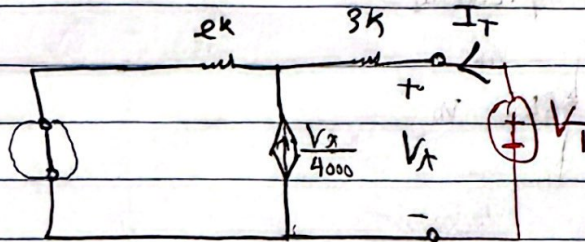 2K 3K IT
+
Vx/4000 VA
-
+
-